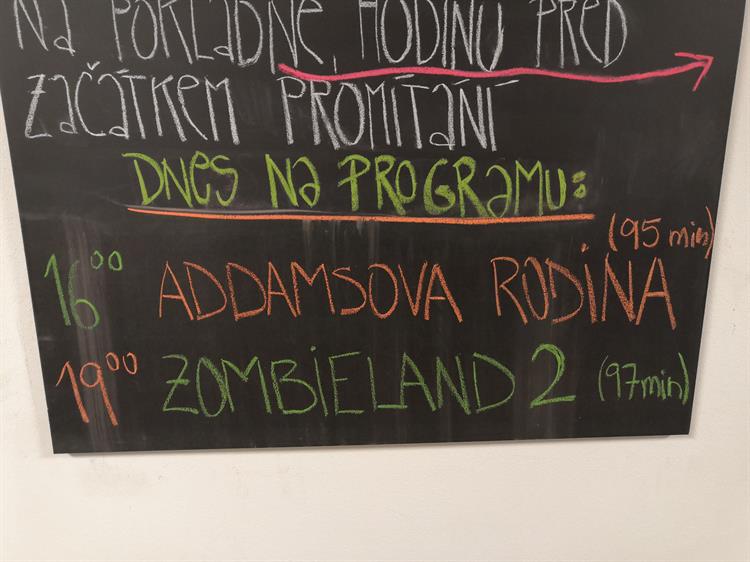 NA POKLADNĚ, HODINU PŘED
ZAČÁTKEM PROMÍTÁNÍ
DNES NA PROGRAMU:
(95 min)
16⁰⁰ ADDAMSOVA RODINA
19⁰⁰ ZOMBIELAND 2 (97min)